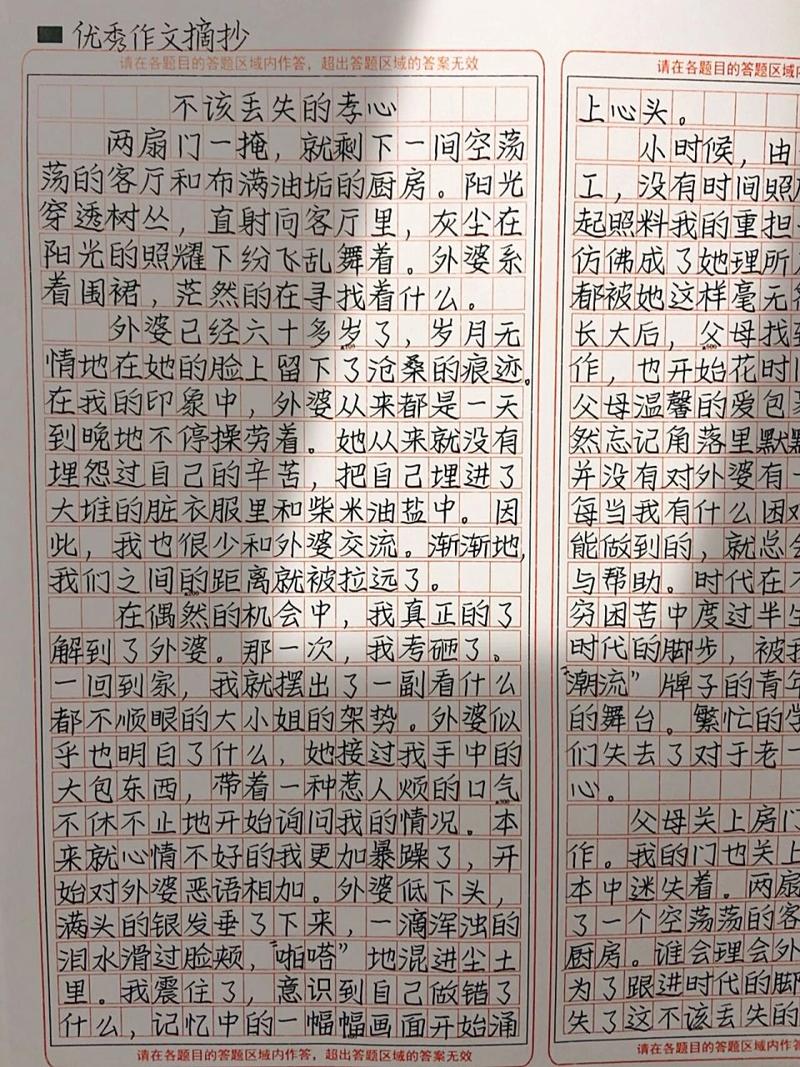 优秀作文摘抄
请在各题目的答题区域内作答，超出答题区域的答案无效
不该丢失的孝心
两扇门一掩，就剩下一间空荡
荡的客厅和布满油垢的厨房。阳光
穿透树丛，直射向客厅里，灰尘在
阳光的照耀下纷飞乱舞着。外婆系
着围裙，茫然的在寻找着什么。
外婆已经六十多岁了，岁月无
情地在她的脸上留下了沧桑的痕迹。
在我的印象中，外婆从来都是一天
到晚地不停操劳着。她从来就没有
埋怨过自己的辛苦，把自己埋进了
大堆的脏衣服里和柴米油盐中。因
此，我也很少和外婆交流。渐渐地，
我们之间的距离就被拉远了。
在偶然的机会中，我真正的了
解到了外婆。那一次，我考砸了。
一回到家，我就摆出了一副看什么
都不顺眼的大小姐的架势。外婆似
乎也明白了什么，她接过我手中的
大包东西，带着一种惹人烦的口气
不休不止地开始询问我的情况。本
来就心情不好的我更加暴躁了，开
始对外婆恶语相加。外婆低下头，
满头的银发垂了下来，一滴浑浊的
泪水滑过脸颊，“啪嗒”地混进尘土
里。我震住了，意识到自己做错了
什么，记忆中的一幅幅画面开始涌
请在各题目的答题区域内作答，超出答题区域的答案无效
请在各题目的答题区域内
上心头。
小时候，由
工，没有时间照
起照料我的重担
仿佛成了她理所
都被她这样毫无
长大后，父母找到
作，也开始花时
父母温馨的爱包
然忘记角落里默默
并没有对外婆有一
每当我有什么困
能做到的，就总会
与帮助。时代在
穷困苦中度过半生
时代的脚步，被我
“潮流”牌子的青年
的舞台。繁忙的学
们失去了对于老一
心。
父母关上房门
作。我的门也关上
本中迷失着。两扇
了一个空荡荡的客
厨房。谁会理会外
为了跟进时代的脚
失了这不该丢失的
请在各题目的答题区域内